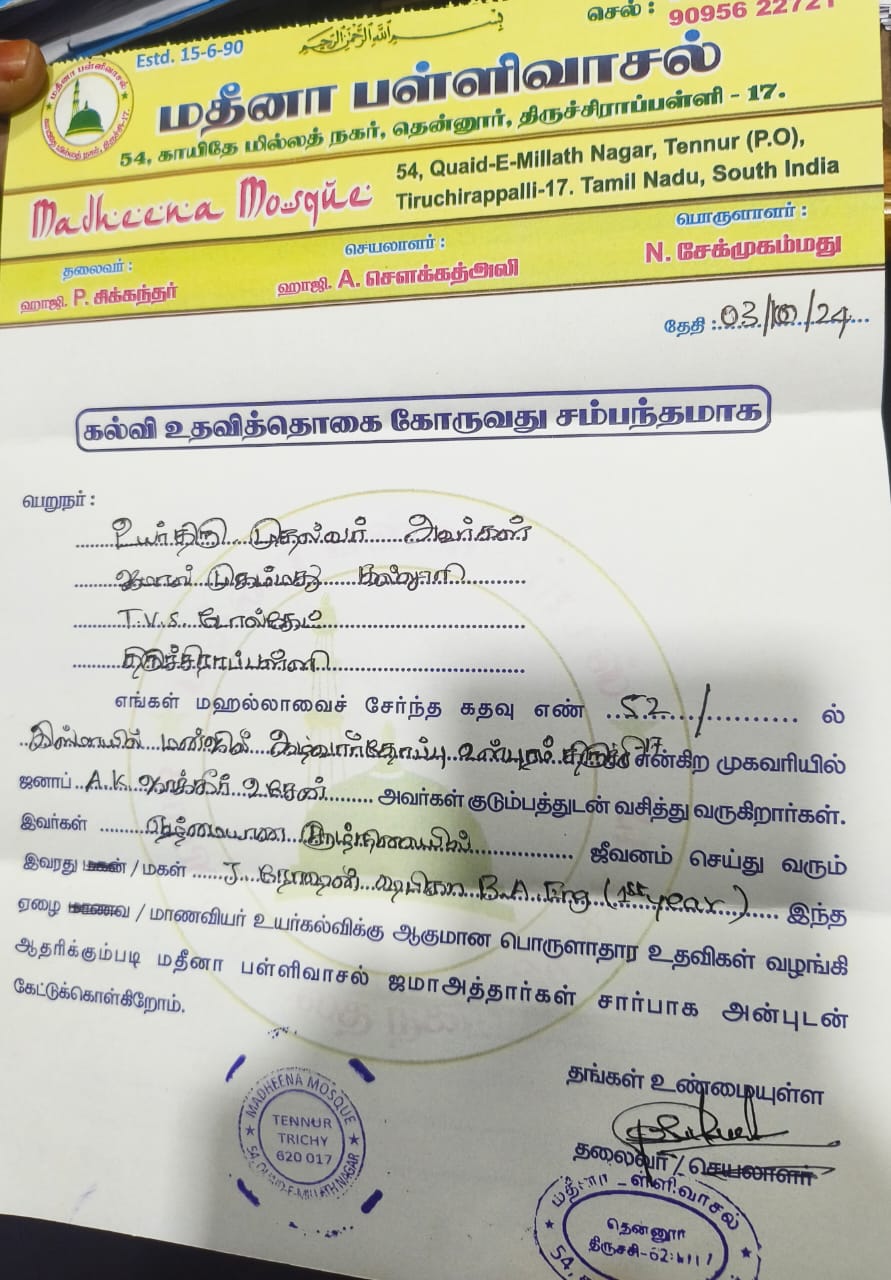 செல் : 90956 22721
Estd. 15-6-90
بِسْمِ اللهِ الرَّحْمٰنِ الرَّحِيْمِ
மதீனா பள்ளிவாசல்
54, காயிதே மில்லத் நகர், தென்னூர், திருச்சிராப்பள்ளி - 17.
Madheena Mosque
54, Quaid-E-Millath Nagar, Tennur (P.O),
Tiruchirappalli-17. Tamil Nadu, South India
தலைவர் :
ஹாஜி. P. சிக்கந்தர்
செயலாளர் :
ஹாஜி. A. சௌக்கத்அலி
பொருளாளர் :
N. சேக்முகம்மது
தேதி : 03/10/24
கல்வி உதவித்தொகை கோருவது சம்பந்தமாக
பெறுநர் :
உயர்திரு முதல்வர் அவர்கள்
ஜமால் முகம்மது கல்லூரி
T.V.S. டோல்கேட்
திருச்சிராப்பள்ளி
எங்கள் மஹல்லாவைச் சேர்ந்த கதவு எண் 52/ ல்
இஸ்மாயில் மன்ஜில் ஆழ்வார்தோப்பு உய்யகொண்டான் திருச்சி 17 என்கிற முகவரியில்
ஜனாப் A.K. ஜாக்கீர் உசேன் அவர்கள் குடும்பத்துடன் வசித்து வருகிறார்கள்.
இவர்கள் ஏழ்மையான சூழ்நிலையில் ஜீவனம் செய்து வரும்
இவரது மகன் / மகள் J. ரோஷனி B.A. Eng (1st year) இந்த
ஏழை மாணவ / மாணவியர் உயர்கல்விக்கு ஆகுமான பொருளாதார உதவிகள் வழங்கி
ஆதரிக்கும்படி மதீனா பள்ளிவாசல் ஜமாஅத்தார்கள் சார்பாக அன்புடன்
கேட்டுக்கொள்கிறோம்.
தங்கள் உண்மையுள்ள
தலைவர் / செயலாளர்
MADHEENA MOSQUE
TENNUR
TRICHY
620 017
54, QUAID-E-MILLATH NAGAR
மதீனா பள்ளிவாசல்
தென்னூர்